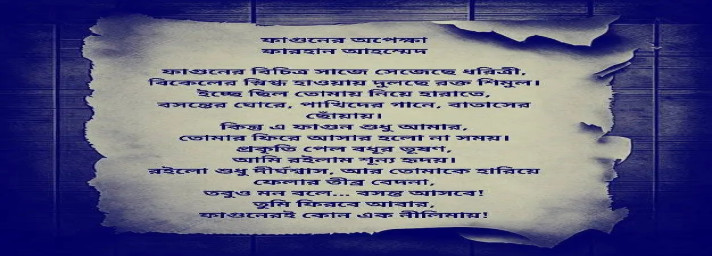 ফাগুনের অপেক্ষা
ফারহান আহম্মেদ
ফাগুনের বিচিত্র সাজে সেজেছে ধরিত্রী,
বিকেলের স্নিগ্ধ হাওয়ায় দুলছে রক্ত শিমুল।
ইচ্ছে ছিল তোমায় নিয়ে হারাতে,
বসন্তের ঘোরে, পাখিদের গানে, বাতাসের
ছোঁয়ায়।
কিন্তু এ ফাগুন শুধু আমার,
তোমার ফিরে আসার হলো না সময়।
প্রকৃতি পেল বধূর ভূষণ,
আমি রইলাম শূন্য হৃদয়।
রইলো শুধু দীর্ঘশ্বাস, আর তোমাকে হারিয়ে
ফেলার তীব্র বেদনা,
তবুও মন বলে... বসন্ত আসবে!
তুমি ফিরবে আবার,
ফাগুনেরই কোন এক নীলিমায়!